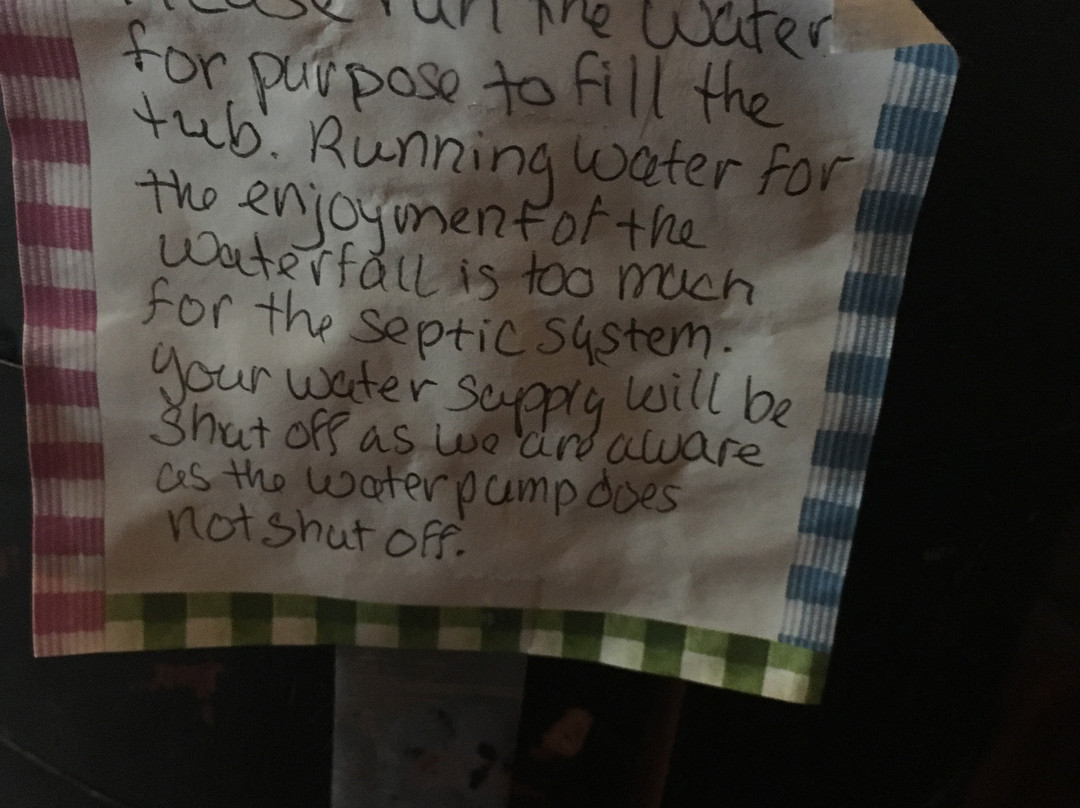 Please run the water
for purpose to fill the
tub. Running water for
the enjoyment of the
waterfall is too much
for the septic system.
your water supply will be
shut off as we are aware
as the water pump does
not shut off.